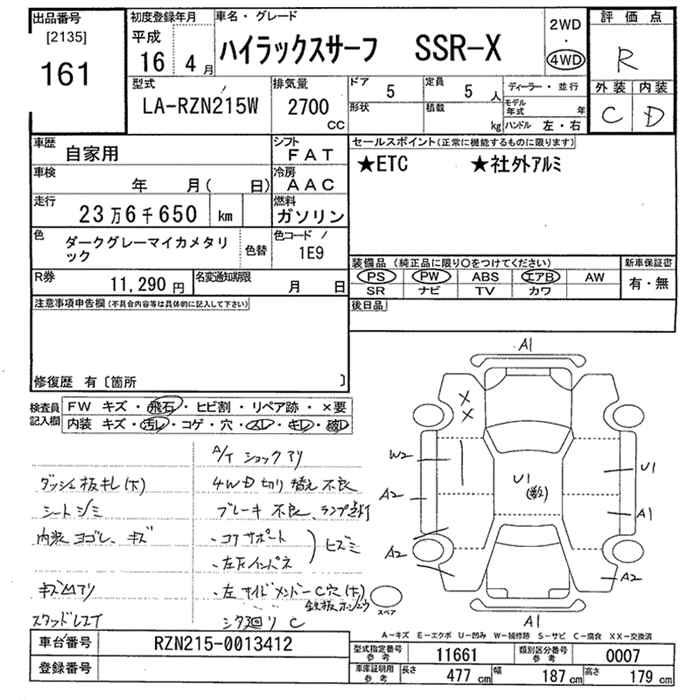 出品番号
[2135]
161
初度登録年月
平成
16 4 月
車名・グレード
ハイラックスサーフ SSR-X
2WD
・
4WD
評価点
R
外装 内装
C D
型式
LA-RZN215W
排気量
2700
CC
ドア 5
定員 5 人
ディーラー・並行
形状
積載 kg
モデル年式 年
ハンドル 左・右
車歴
自家用
シフト
FAT
セールスポイント(正常に機能するものに限ります)
★ETC ★社外アルミ
車検
年 月( 日)
冷房
AAC
走行
23万6千650 km
燃料
ガソリン
色
ダークグレーマイカメタリ
ック
色替
色コード
1E9
装備品(純正品に限り○をつけてください)
新車保証書
PS PW ABS エアB AW
SR ナビ TV カワ
有・無
R券
11,290 円
名変通知期限
月 日
後日品
注意事項申告欄(不具合内容等は具体的に記入して下さい)
修復歴 有〔箇所 〕
検査員
記入欄
FW キズ・飛石・ヒビ割・リペア跡・×要
内装 キズ・汚レ・コゲ・穴・スレ・キレ・破レ
A/T ショックアリ
ダッシュ板キレ(大)
4WD切り替え不良
シートシミ
ブレーキ不良、ランプ点灯
内装ヨゴレ、キズ
・コアサポート
・左右インパネ
ヒズミ
キズ凹アリ
・左サイドメンバーC穴(大)
スタッドレスT
シタ廻りC
A1
X
X
W2
A2
A2
U1
U1
A1
A2
A1
スペア
A-キズ E-エクボ U-凹み W-補修跡 S-サビ C-腐食 XX-交換済
車台番号
RZN215-0013412
登録番号
型式指定番号
参考
11661
類別区分番号
参考
0007
車庫証明用
参考
長さ 477 cm
幅 187 cm
高さ 179 cm